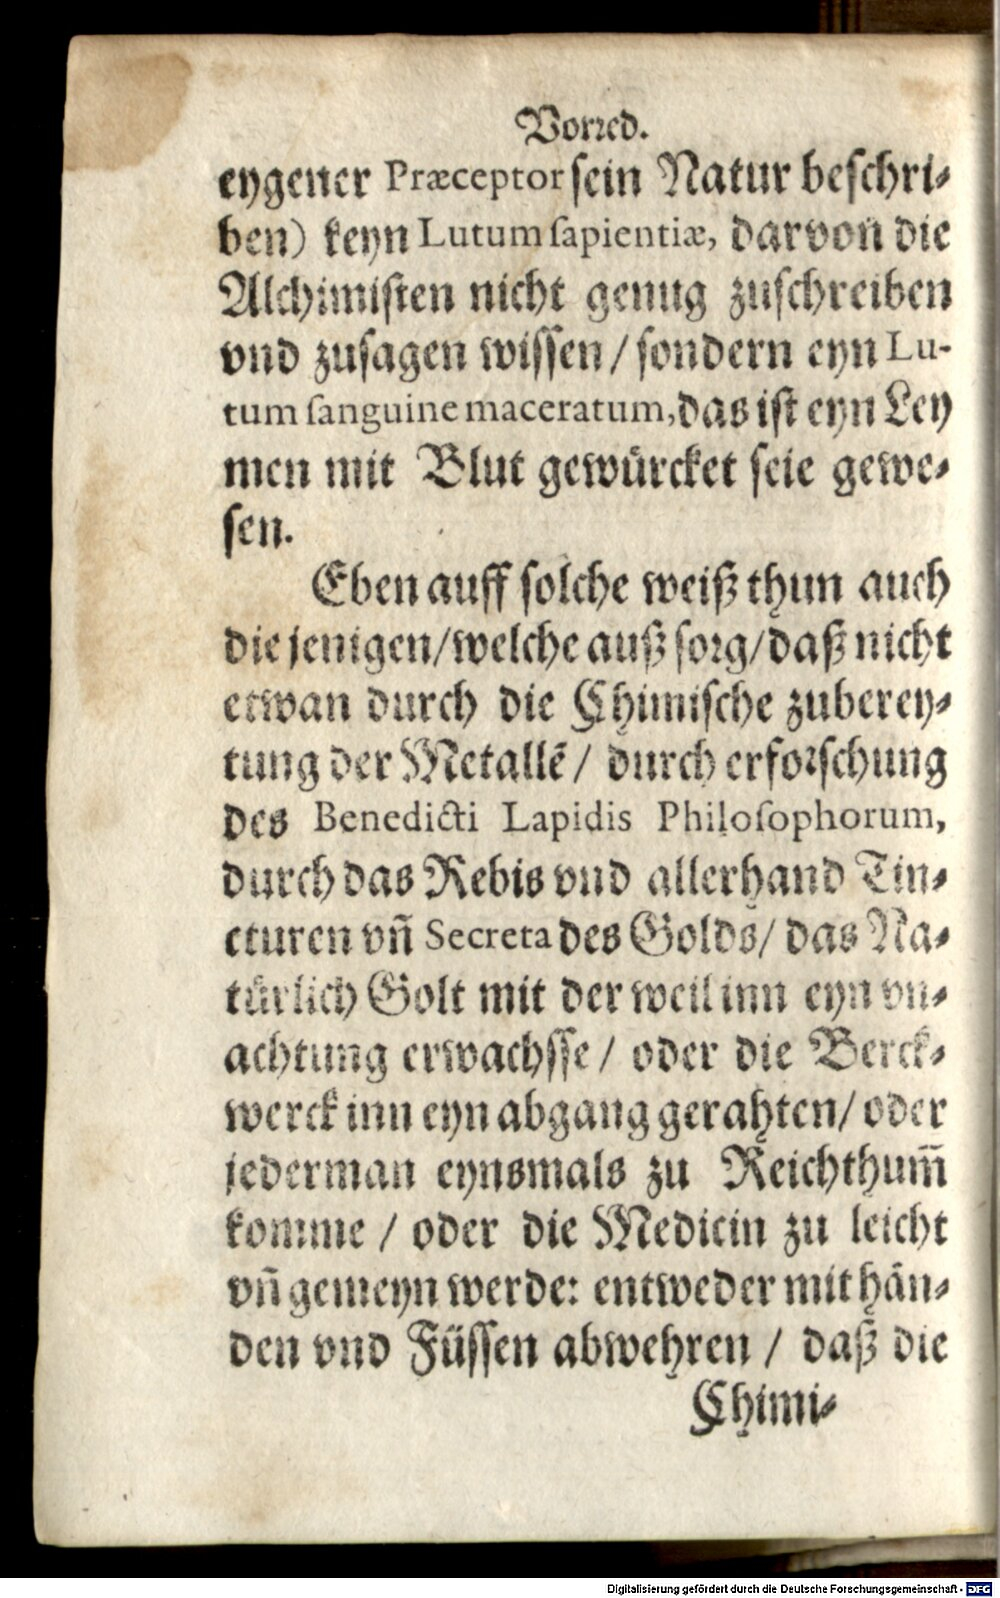 Vorred.
eygener Præceptor sein Natur beschri⸗
ben) keyn Lutum ſapientiæ, darvon die
Alchimisten nicht genug zuschreiben
vnd zusagen wissen / sondern eyn Lu-
tum ſanguine maceratum, das ist eyn Ley
men mit Blut gewürcket seie gewe⸗
sen.
Eben auff solche weiß thun auch
die jenigen / welche auß sorg / daß nicht
etwan durch die Chimische zuberey⸗
tung der Metallē / durch erforschung
des Benedicti Lapidis Philoſophorum,
durch das Rebis vnd allerhand Tin⸗
cturen vñ Secreta des Golds / das Na⸗
türlich Golt mit der weil inn eyn vn⸗
achtung erwachsse / oder die Berck⸗
werck inn eyn abgang gerahten / oder
jederman eynsmals zu Reichthum̃
komme / oder die Medicin zu leicht
vñ gemeyn werde: entweder mit hän⸗
den vnd Füssen abwehren / daß die
Chimi⸗
Digitalisierung gefördert durch die Deutsche Forschungsgemeinschaft - DFG